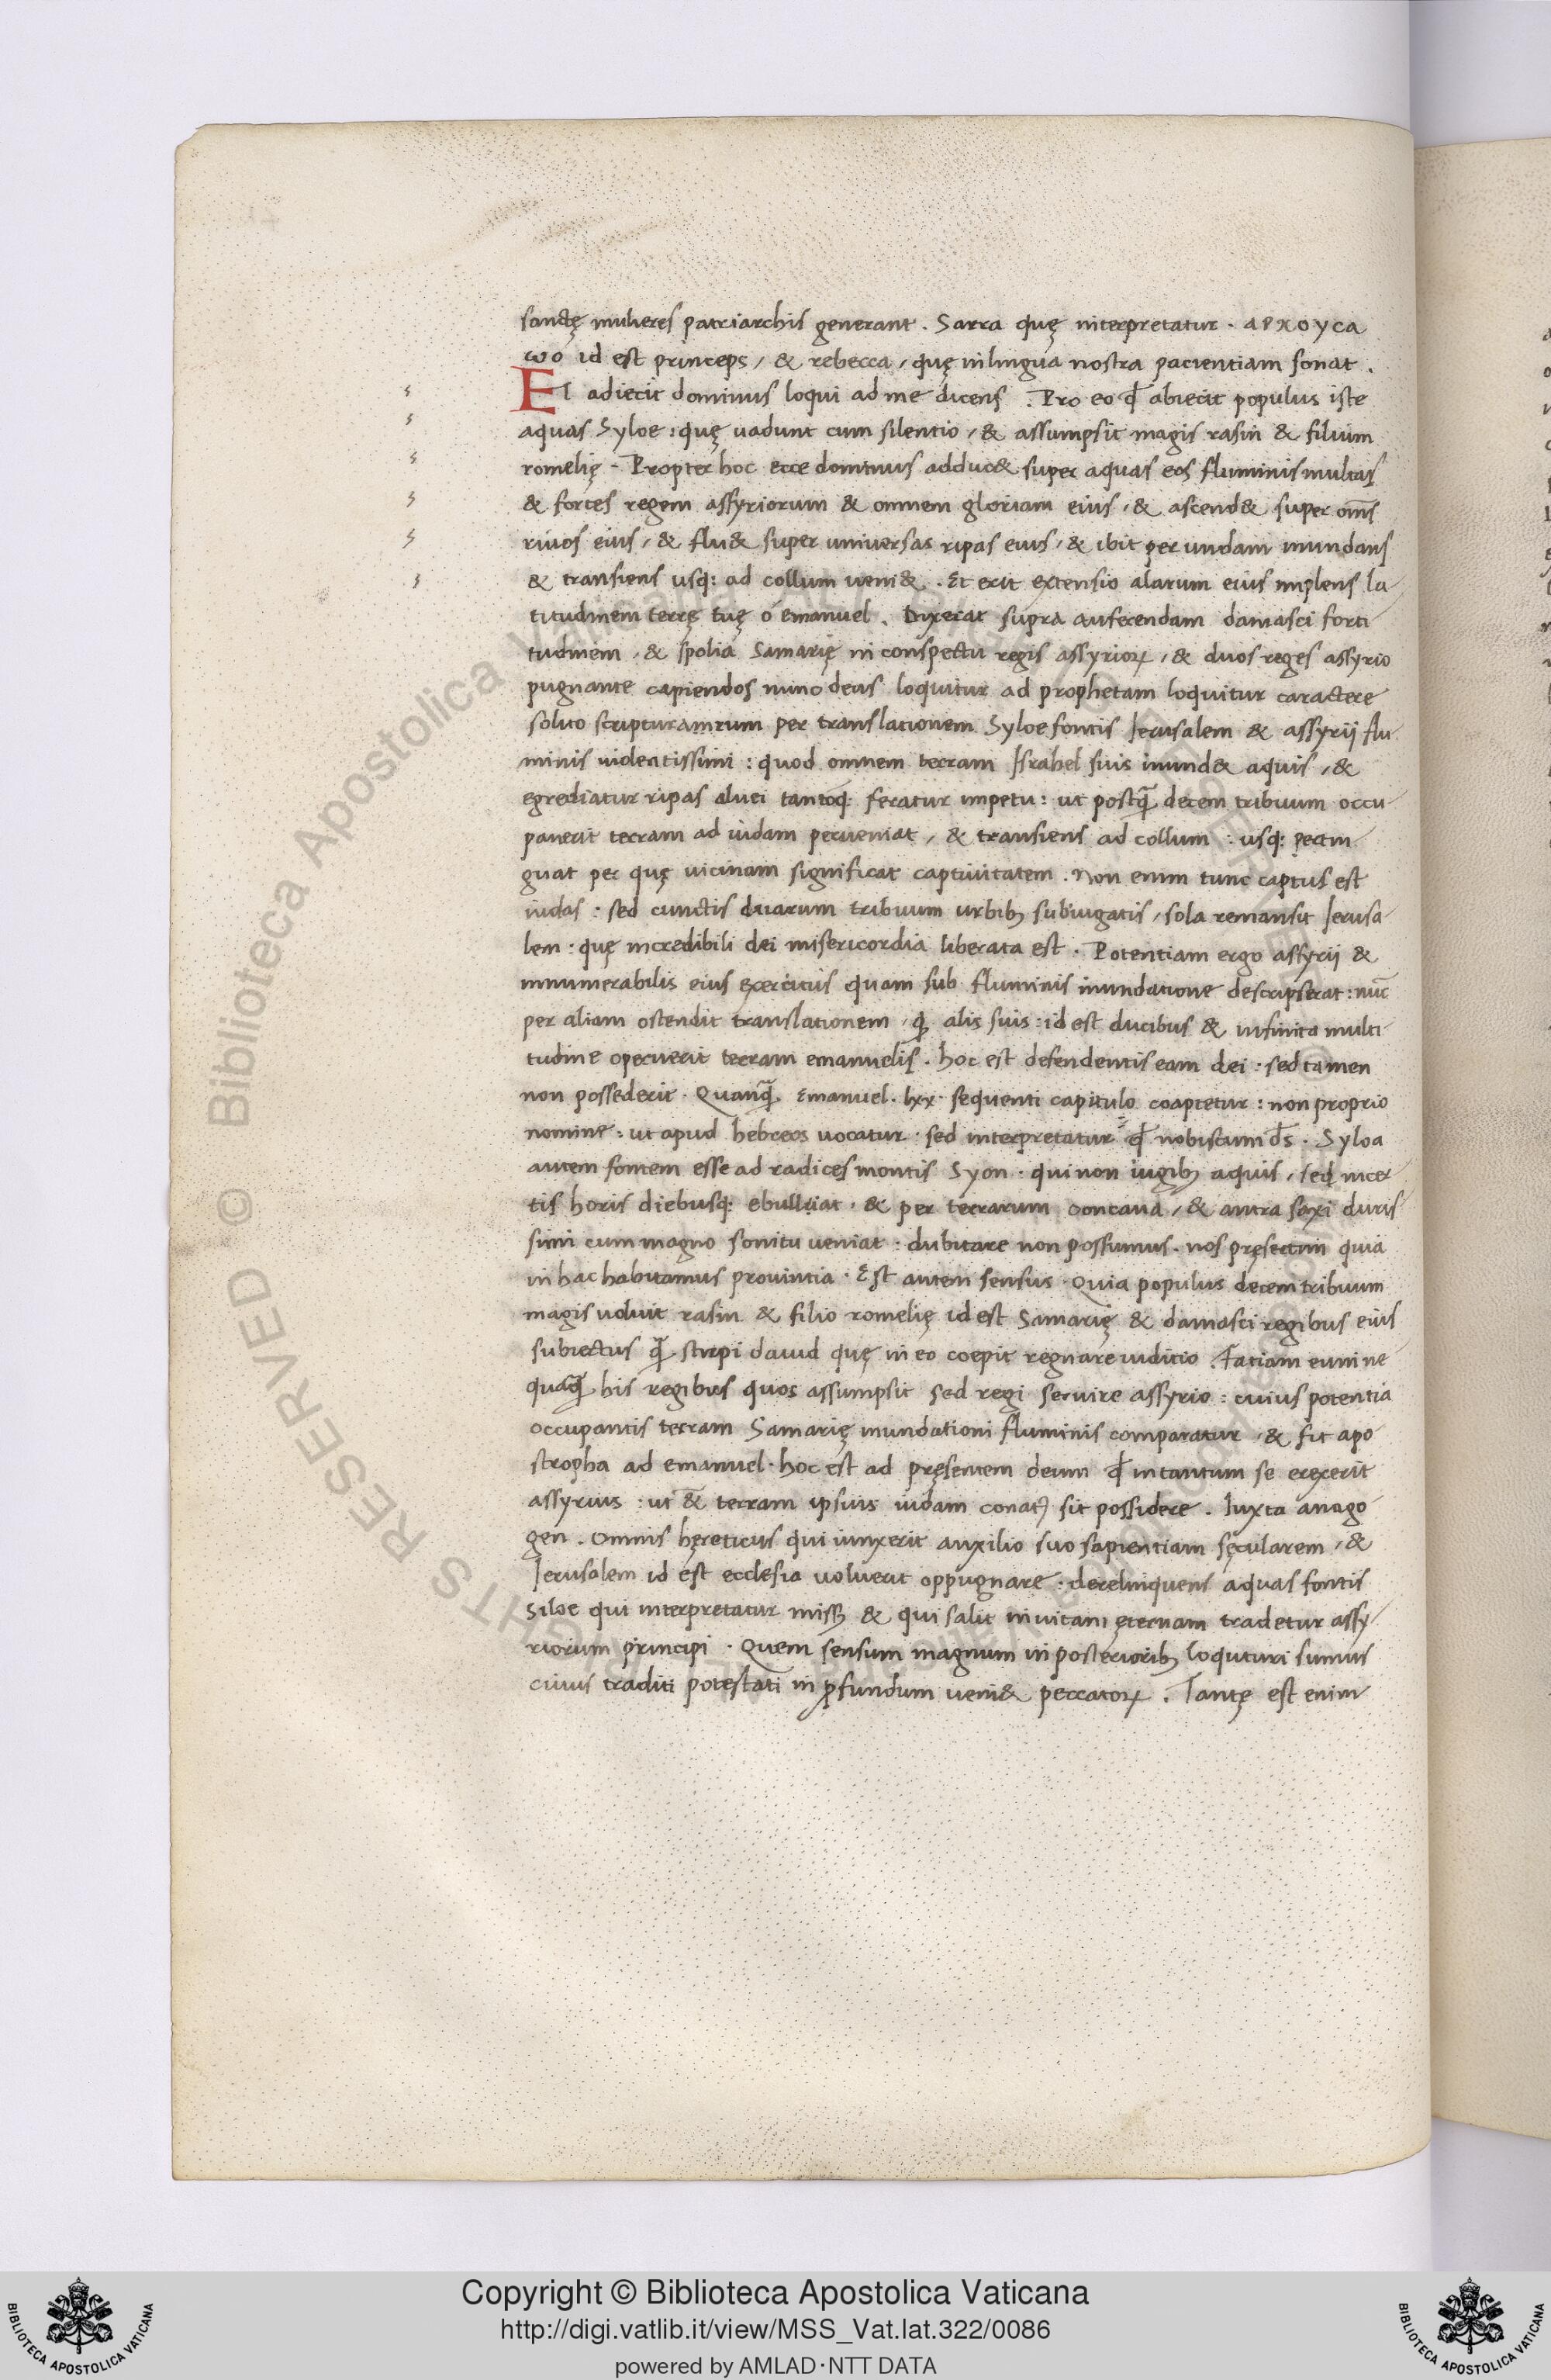 sanctę mulieres patriarchis generant . Sarra quę interpretatur . αρχουcα
ωo id est princeps , & rebecca , quę in lingua nostra pacientiam sonat .
ET adiecit dominus loqui ad me dicens . Pro eo qđ abiecit populus iste
aquas Syloe : quę uadunt cum silentio , & assumpsit magis rasin & filium
romelię . Propter hoc ecce dominus adduc& super aquas eos fluminis multas
& fortes regem assyriorum & omnem gloriam eius , & ascend& super om̅s
riuos eius , & flu& super uniuersas ripas eius , & ibit per iudam inundans
& transiens usq: ad collum ueni& . Et erit extensio alarum eius implens la-
titudinem terrę tuę o emanuel . Dixerat supra auferendam damasci forti
tudinem , & spolia Samarię in conspectu regis assyrioꝝ , & duos reges assyrio
pugnante capiendos nunc deus loquitur ad prophetam loquitur caractere
solito scripturamrum per translationem Syloe fontis Ierusalem & assyrij flu-
minis uiolentissimi : quod omnem terram Israhel suis inund& aquis , &
egrediatur ripas aluei tantoq: feratur impetu : ut postq̄ decem tribuum occu-
pauerit terram ad iudam perueniat , & transiens ad collum : usq: pertin-
guat per quę uicinam significat captiuitatem . Non enim tunc captus est
iudas : sed cunctis duarum tribuum urbibꝫ subiugatis , sola remansit Ierusa-
lem : quę incredibili dei misericordia liberata est . Potentiam ergo assyrii &
innumerabilis eius exercitus quam sub fluminis inundatione descripserat : nūc
per aliam ostendit translationem , q alis suis : id est ducibus & infinita multi-
tudine operuerit terram emanuelis . hoc est defendentis eam dei : sed tamen
non possederit . Quanq̄ Emanuel . lxx . sequenti capitulo coaptetur : non proprio
nomine : ut apud hebreos uocatur . sed interpretatur qđ nobiscum d̅s . Syloa
autem fontem esse ad radices montis Syon . qui non iugibꝫ aquis , sed incer-
tis horis diebusq: ebulliat , & per terrarum concaua , & antra saxi duris-
simi cum magno sonitu ueniat : dubitare non possumus . nos pręsertim quia
in hac habitamus prouintia . Est autem sensus . Quia populus decem tribuum
magis uoluit rasin & filio romelię id est Samarię & damasci regibus eius
subiectus q̄ stirpi dauid quę in eo coepit regnare iuditio . Fatiam eum ne
quaq̄ his regibus quos assumpsit sed regi seruire assyrio : cuius potentia
occupantis terram Samarię inundationi fluminis comparatur , & fit apo-
stropha ad emanuel . hoc est ad pręsentem deum qđ in tantum se erexerit
assyrius : ut & terram ipsius iudam conatꝰ sit possidere . Iuxta anago-
gen . Omnis hęreticus qui iunxerit auxilio suo sapientiam sęcularem , &
Ierusalem id est ecclesia uoluerit oppugnare : derelinquens aquas fontis
Siloe qui interpretatur missꝰ & qui salit in uitam ęternam tradetur assy-
riorum principi . Quem sensum magnum in posterioribꝫ loquturi sumus
cuius traditi potestati in ꝓfundum ueni& peccatoꝝ . Tantę est enim
Copyright © Biblioteca Apostolica Vaticana
http://digi.vatlib.it/view/MSS_Vat.lat.322/0086
powered by AMLAD·NTT DATA